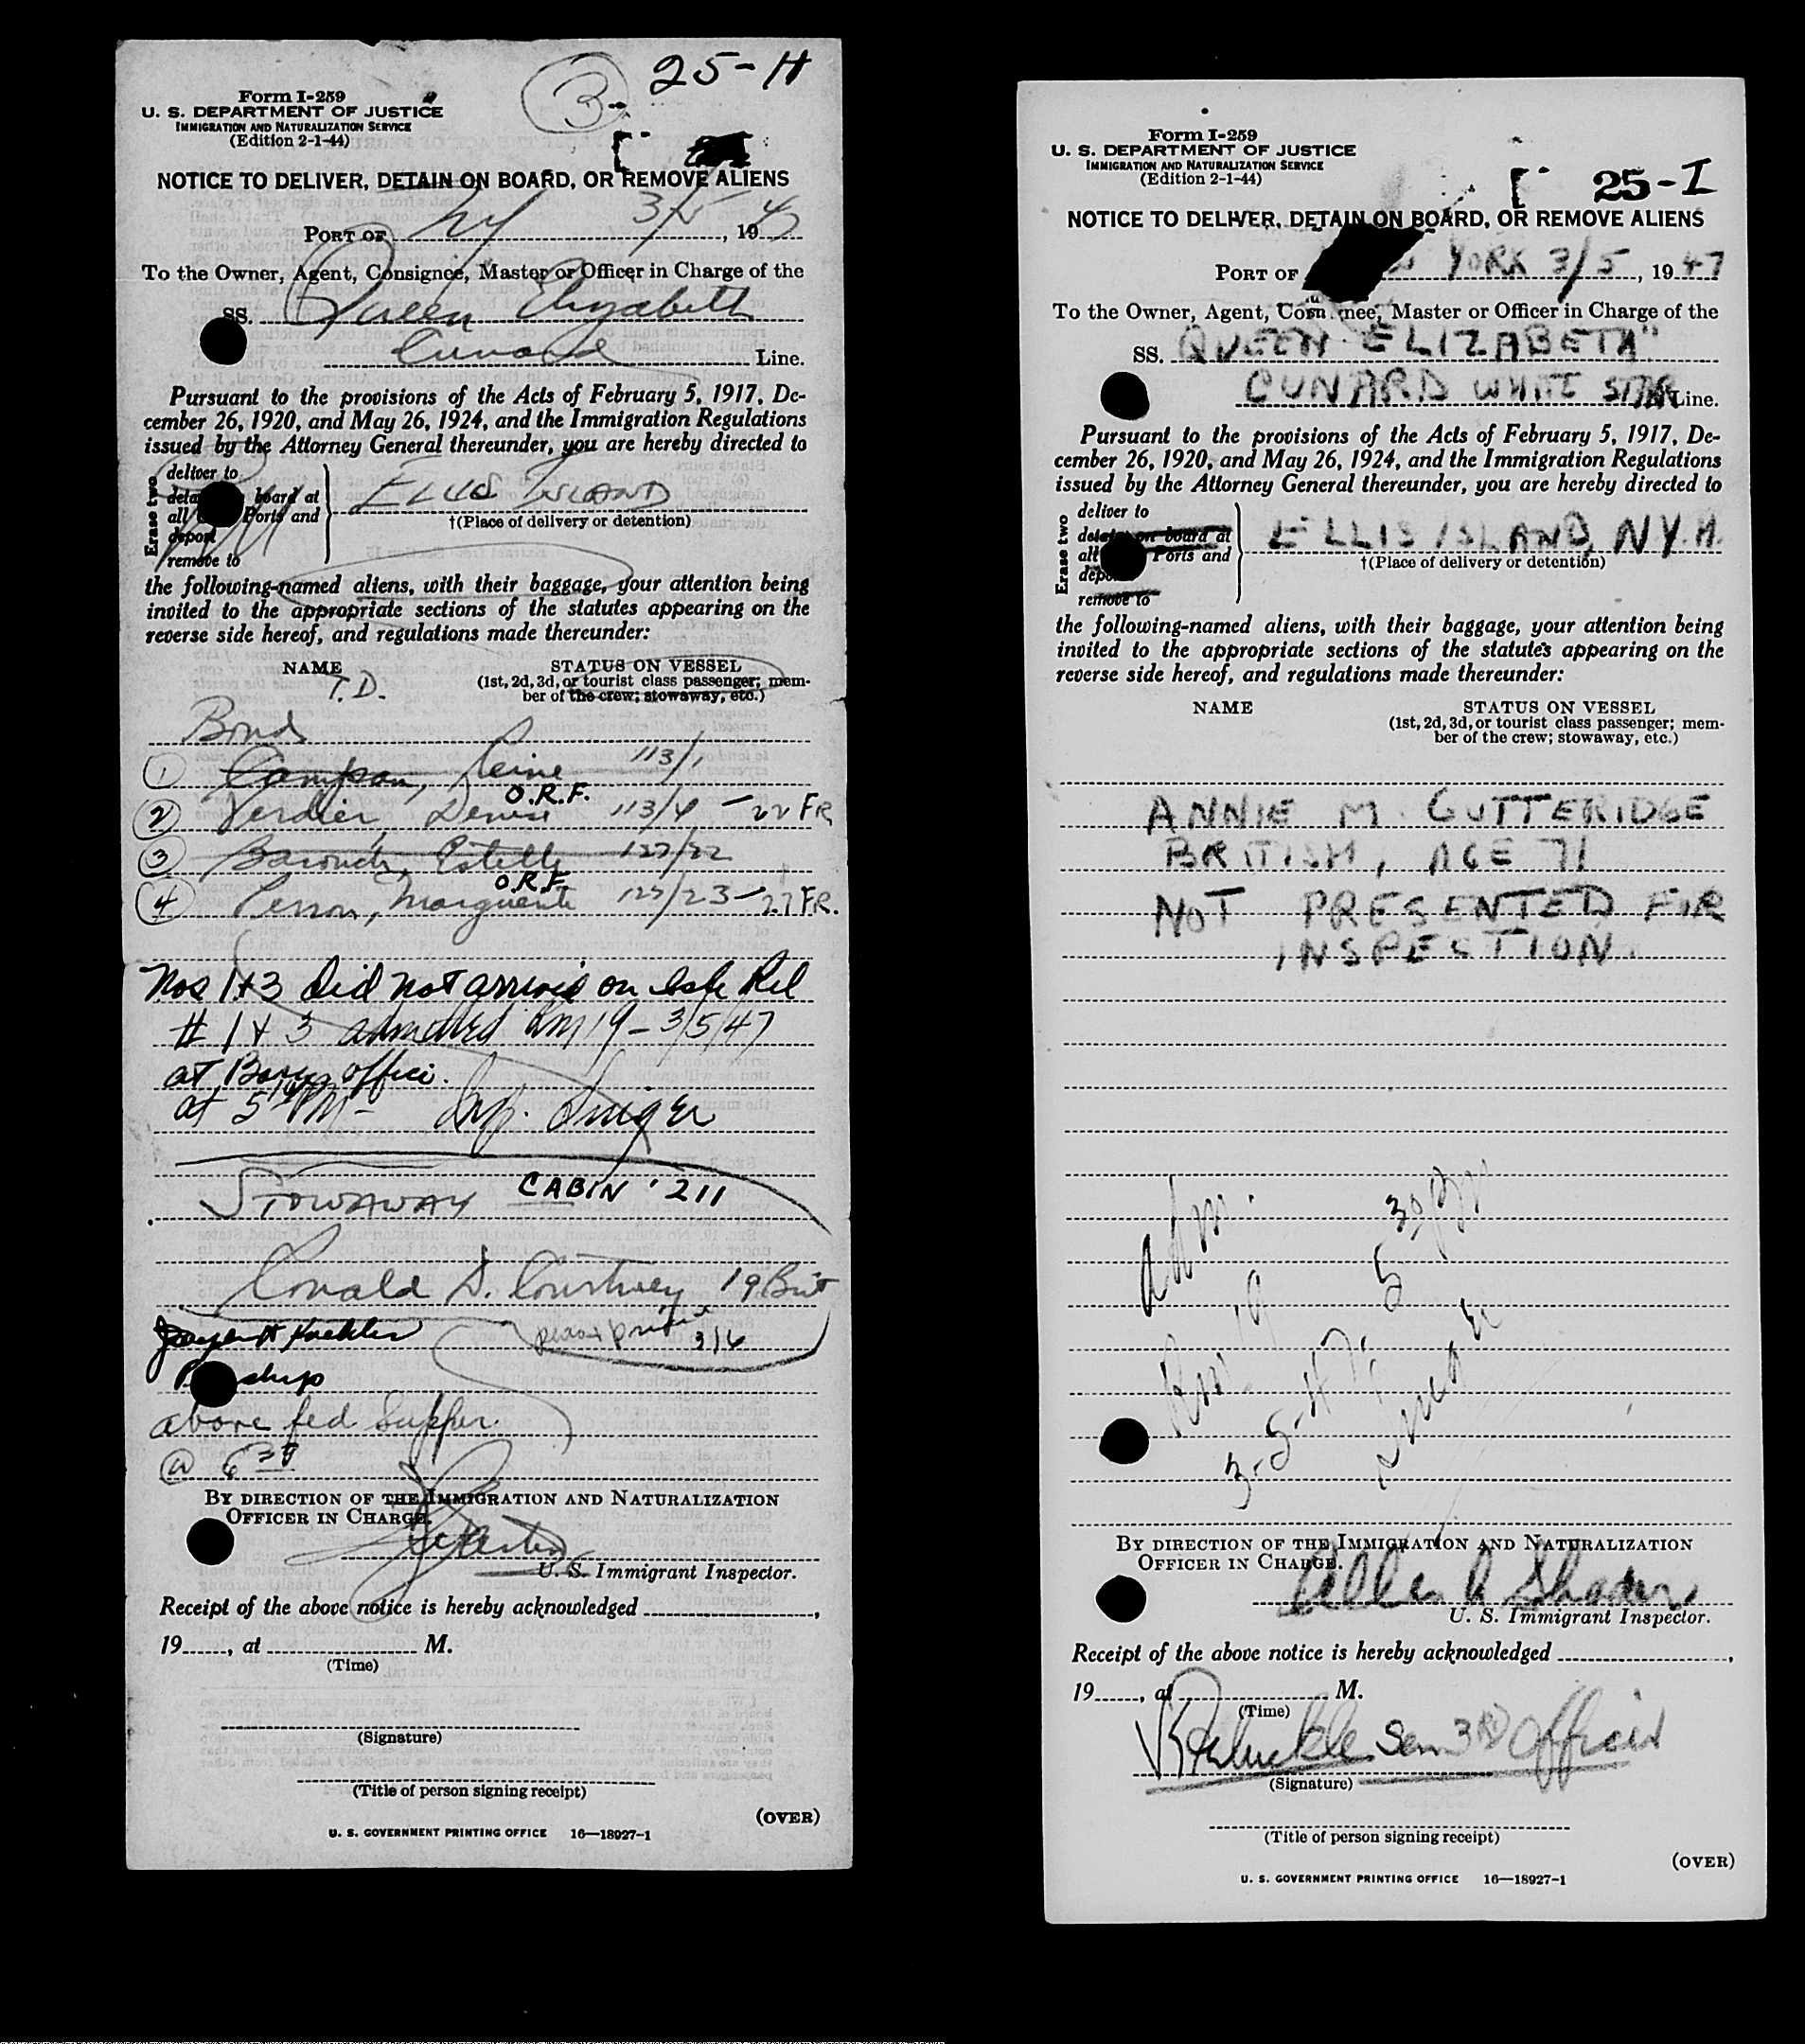 25-H
3
Form I-259
U. S. DEPARTMENT OF JUSTICE
IMMIGRATION AND NATURALIZATION SERVICE
(Edition 2-1-44)
NOTICE TO DELIVER, DETAIN ON BOARD, OR REMOVE ALIENS
PORT OF NY 3/5, 1947
To the Owner, Agent, Consignee, Master or Officer in Charge of the
SS. Queen Elizabeth
Cunard Line.
Pursuant to the provisions of the Acts of February 5, 1917, De-
cember 26, 1920, and May 26, 1924, and the Immigration Regulations
issued by the Attorney General thereunder, you are hereby directed to
Erase two
deliver to
board at
all Ports and
deport
remove to
ELLIS ISLAND
†(Place of delivery or detention)
the following-named aliens, with their baggage, your attention being
invited to the appropriate sections of the statutes appearing on the
reverse side hereof, and regulations made thereunder:
NAME STATUS ON VESSEL
T.D. (1st, 2d, 3d, or tourist class passenger; mem-
ber of the crew; stowaway, etc.)
Bond
1 Reine 113/1
O.R.F.
2 Verdier, Denise 113/4 - 22 FR
3 Estelle 127/22
O.R.F.
4 Marguerite 127/23 - 27 FR.
Nos 1+3 did not arrive on
# 1 + 3 admitted Rm 19 - 3/5/47
at office.
at 5 PM - Insp.
STOWAWAY CABIN 211
Ronald D. Courtney 19 Brit
3/6
above fed supper.
@ 6 30
BY DIRECTION OF THE IMMIGRATION AND NATURALIZATION
OFFICER IN CHARGE.
U. S. Immigrant Inspector.
Receipt of the above notice is hereby acknowledged ,
19 , at M.
(Time)
(Signature)
(Title of person signing receipt)
(OVER)
U. S. GOVERNMENT PRINTING OFFICE 16—18927-1
Form I-259
U. S. DEPARTMENT OF JUSTICE
IMMIGRATION AND NATURALIZATION SERVICE
(Edition 2-1-44)
25-I
NOTICE TO DELIVER, DETAIN ON BOARD, OR REMOVE ALIENS
PORT OF YORK 3/5, 1947
To the Owner, Agent, Master or Officer in Charge of the
SS. QUEEN ELIZABETH"
CUNARD WHITE STAR Line.
Pursuant to the provisions of the Acts of February 5, 1917, De-
cember 26, 1920, and May 26, 1924, and the Immigration Regulations
issued by the Attorney General thereunder, you are hereby directed to
Erase two
deliver to
on board at
all Ports and
remove to
ELLIS ISLAND, N.Y.H.
†(Place of delivery or detention)
the following-named aliens, with their baggage, your attention being
invited to the appropriate sections of the statutes appearing on the
reverse side hereof, and regulations made thereunder:
NAME STATUS ON VESSEL
(1st, 2d, 3d, or tourist class passenger; mem-
ber of the crew; stowaway, etc.)
ANNIE M. GUTTERIDGE
BRITISH, AGE 71
NOT PRESENTED FOR
INSPECTION.
Adm. 5 30 PM
Rm. 19
3-5-47
BY DIRECTION OF THE IMMIGRATION AND NATURALIZATION
OFFICER IN CHARGE.
U. S. Immigrant Inspector.
Receipt of the above notice is hereby acknowledged ,
19 , at M.
(Time)
Sen 3RD Officer
(Signature)
(Title of person signing receipt)
(OVER)
U. S. GOVERNMENT PRINTING OFFICE 16—18927-1